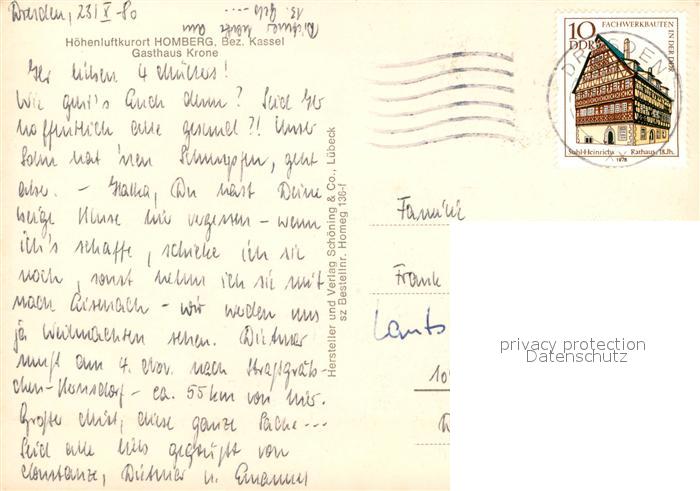 Dresden, 23. X. 80
13. Geb. ....
Dietmar hatte am
Höhenluftkurort HOMBERG, Bez. Kassel
Gasthaus Krone
Ihr lieben 4 Müllers!
Wie geht's Euch denn? Seid Ihr
hoffentlich alle gesund?! Unser
Sohn hat 'nen Schnupfen, geht
aber. – Du hast Deine
beige Hose hier vergessen – wenn
ich's schaffe, schicke ich sie
noch, sonst nehm ich sie mit
nach Eisenach – wir werden uns
ja Weihnachten sehen. Dietmar
muß am 4. Nov. nach Straßgräb-
chen-Bernsdorf – ca. 55 km von hier.
Großer Mist, diese ganze Sache ---
Seid alle lieb gegrüßt von
Constanze, Dietmar u. Emanuel
Hersteller und Verlag Schöning & Co., Lübeck
sz Bestellnr. Homeg 136-f
10
DDR
FACHWERKBAUTEN IN DER DDR
Suhl-Heinrichs Rathaus, 16.Jh.
1978
DRESDEN
Familie
Frank
10
D
privacy protection
Datenschutz